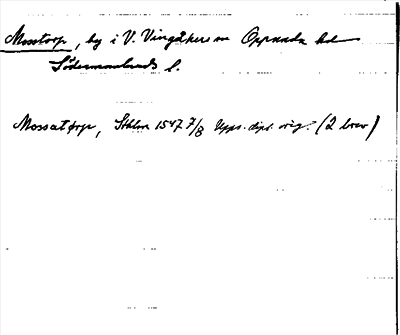 Mosstorp, by i V. Vingåkers sn Oppunda hd
Södermanlands l.
Mossatorp, Sthlm 1547 7/8 Upps. dipl. orig. (2 brev)